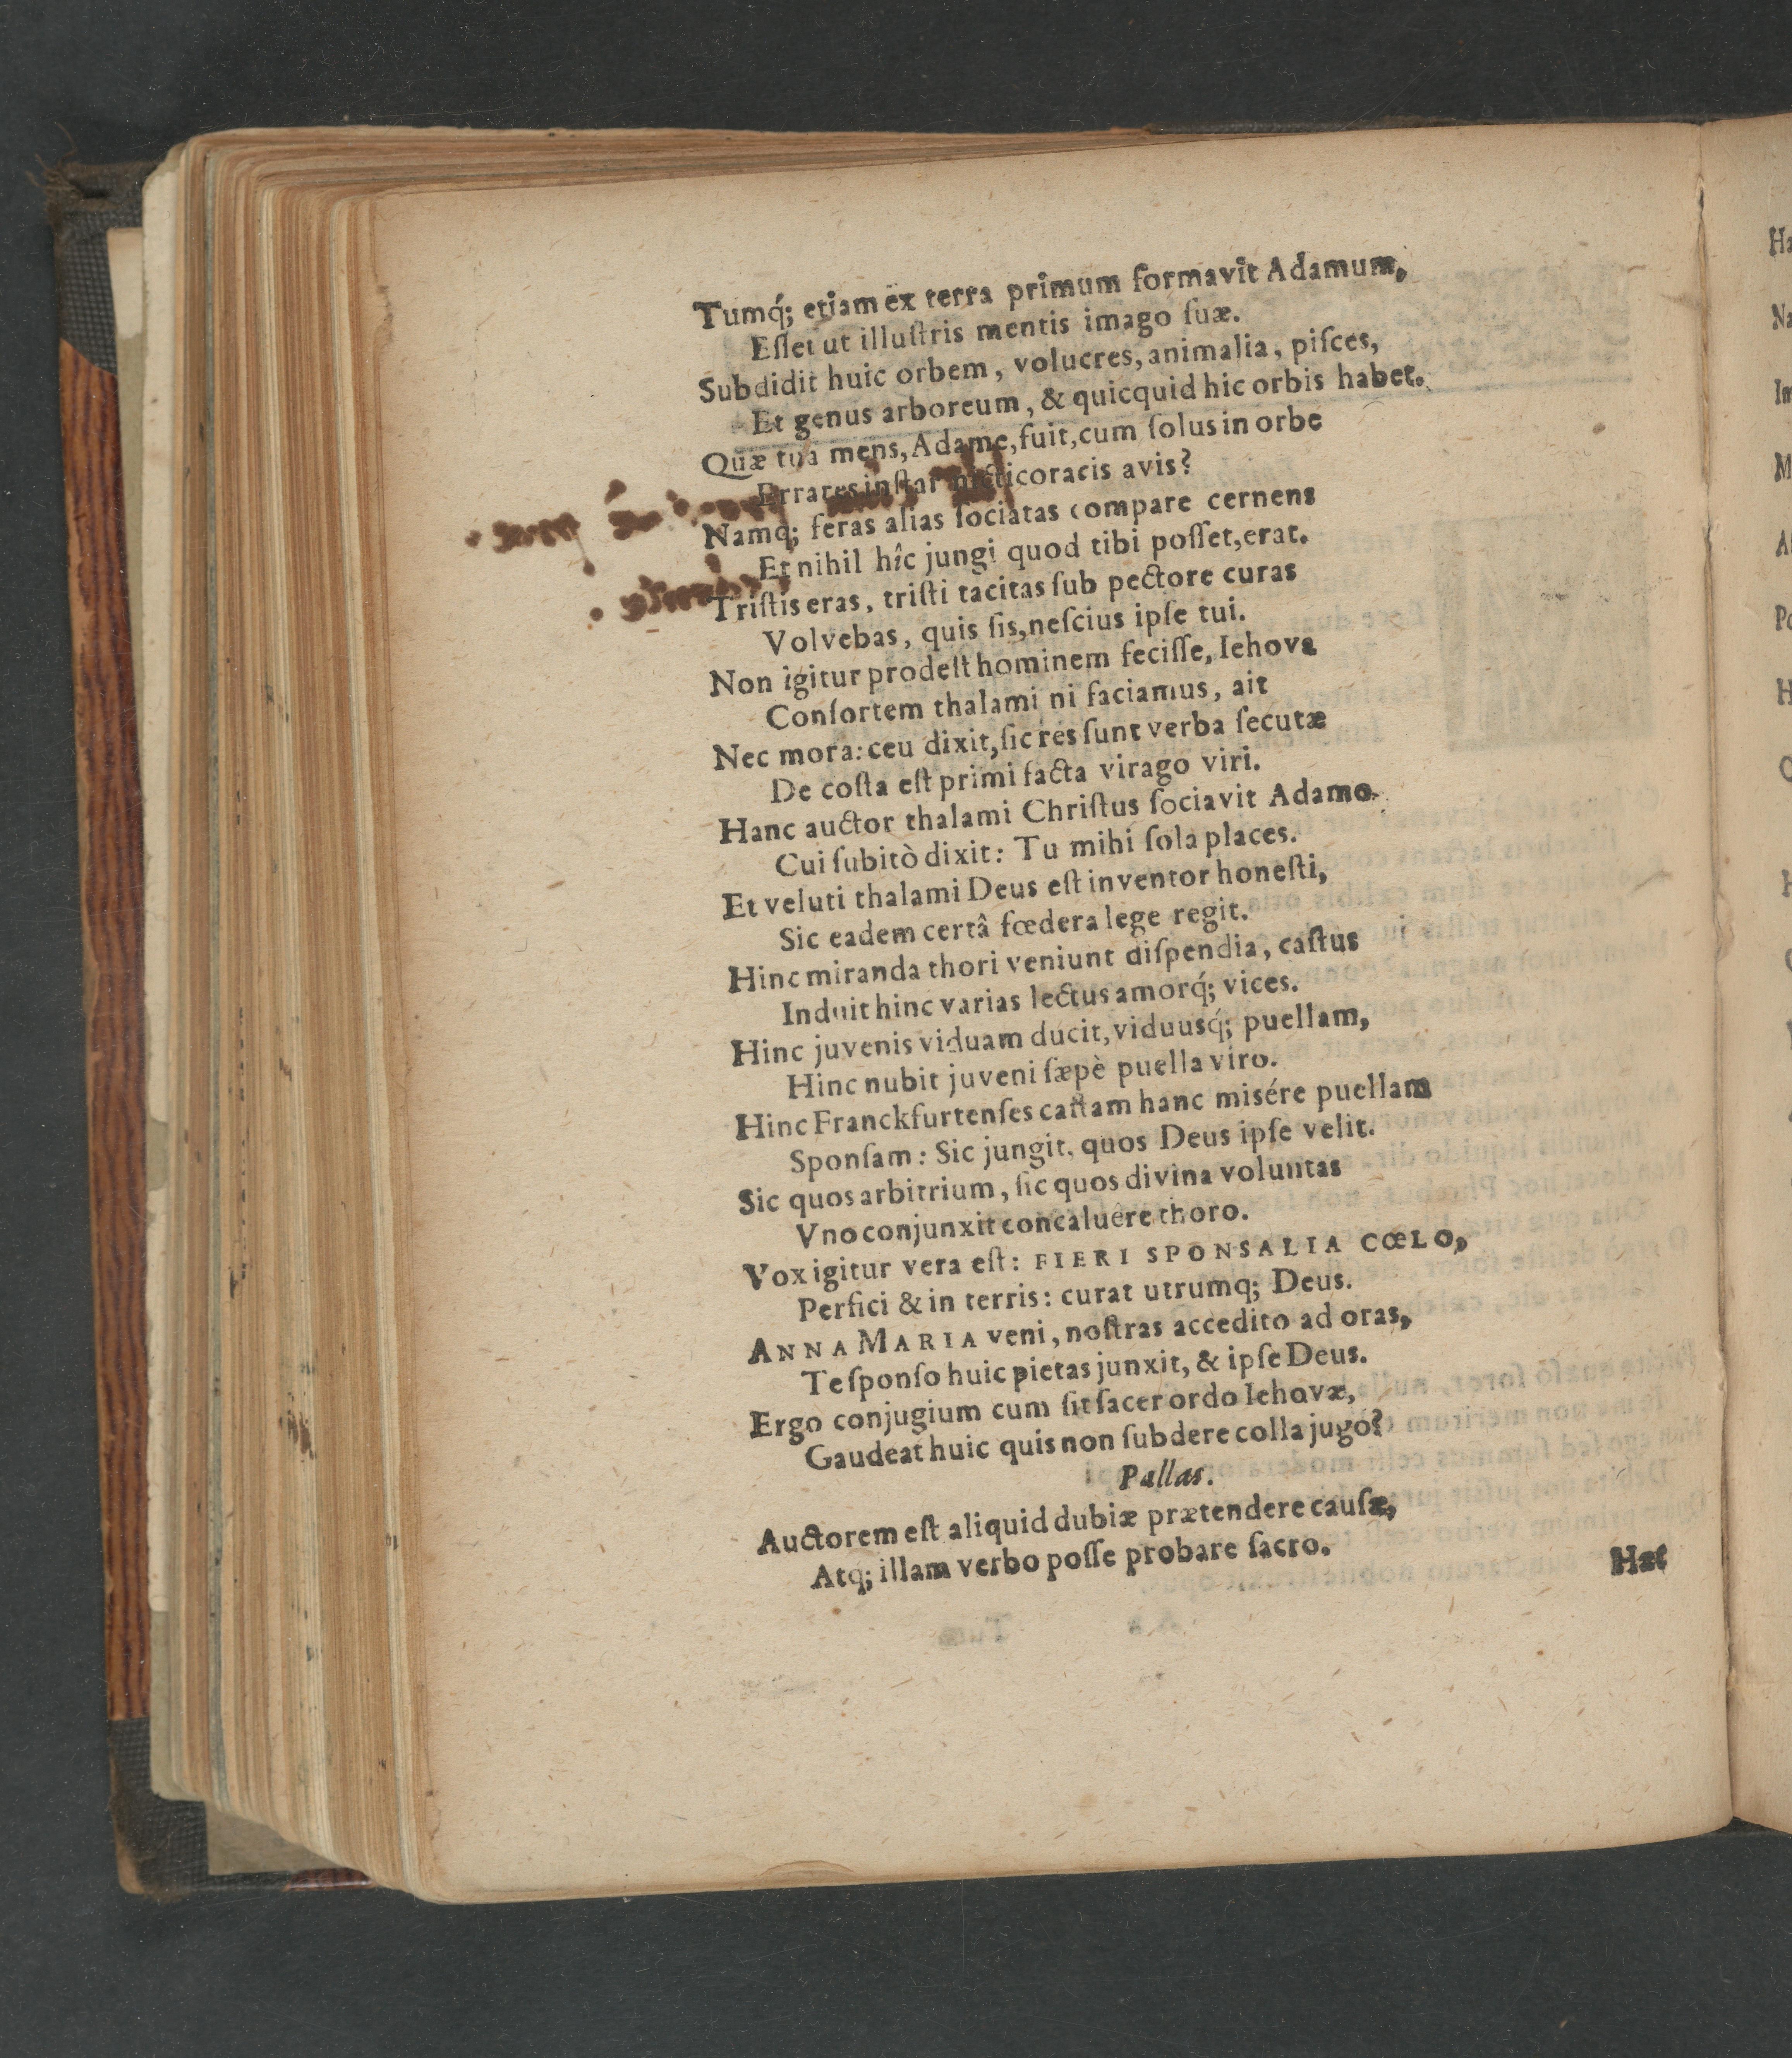 Tumq́; etiam ex terra primum formavit Adamum,
Eſſet ut illuſtris mentis imago ſuæ.
Subdidit huic orbem, volucres, animalia, piſces,
Et genus arboreum, & quicquid hic orbis habet.
Quæ tua mens, Adame, fuit, cum ſolus in orbe
Errares inſtar nicticoracis avis?
Namq; feras alias ſociatas compare cernens
Et nihil hîc jungi quod tibi poſſet, erat.
Triſtis eras, triſti tacitas ſub pectore curas
Volvebas, quis ſis, neſcius ipſe tui.
Non igitur prodeſt hominem feciſſe, Iehova
Conſortem thalami ni faciamus, ait
Nec mora: ceu dixit, ſic res ſunt verba ſecutæ
De coſta eſt primi facta virago viri.
Hanc auctor thalami Chriſtus ſociavit Adamo.
Cui ſubitò dixit: Tu mihi ſola places.
Et veluti thalami Deus eſt inventor honeſti,
Sic eadem certâ fœdera lege regit.
Hinc miranda thori veniunt diſpendia, caſtus
Induit hinc varias lectus amorq́; vices.
Hinc juvenis viduam ducit, viduusq́; puellam,
Hinc nubit juveni ſæpè puella viro.
Hinc Franckfurtenſes caſtam hanc misére puellam
Sponſam: Sic jungit, quos Deus ipſe velit.
Sic quos arbitrium, ſic quos divina voluntas
Vno conjunxit concaluêre thoro.
Vox igitur vera eſt: FIERI SPONSALIA CœLO,
Perfici & in terris: curat utrumq; Deus.
ANNA MARIA veni, noſtras accedito ad oras,
Te ſponſo huic pietas junxit, & ipſe Deus.
Ergo conjugium cum ſit ſacer ordo Iehovæ,
Gaudeat huic quis non ſubdere colla jugo?
Pallas.
Auctorem eſt aliquid dubiæ prætendere cauſæ,
Atq; illam verbo poſſe probare ſacro.
Hæc